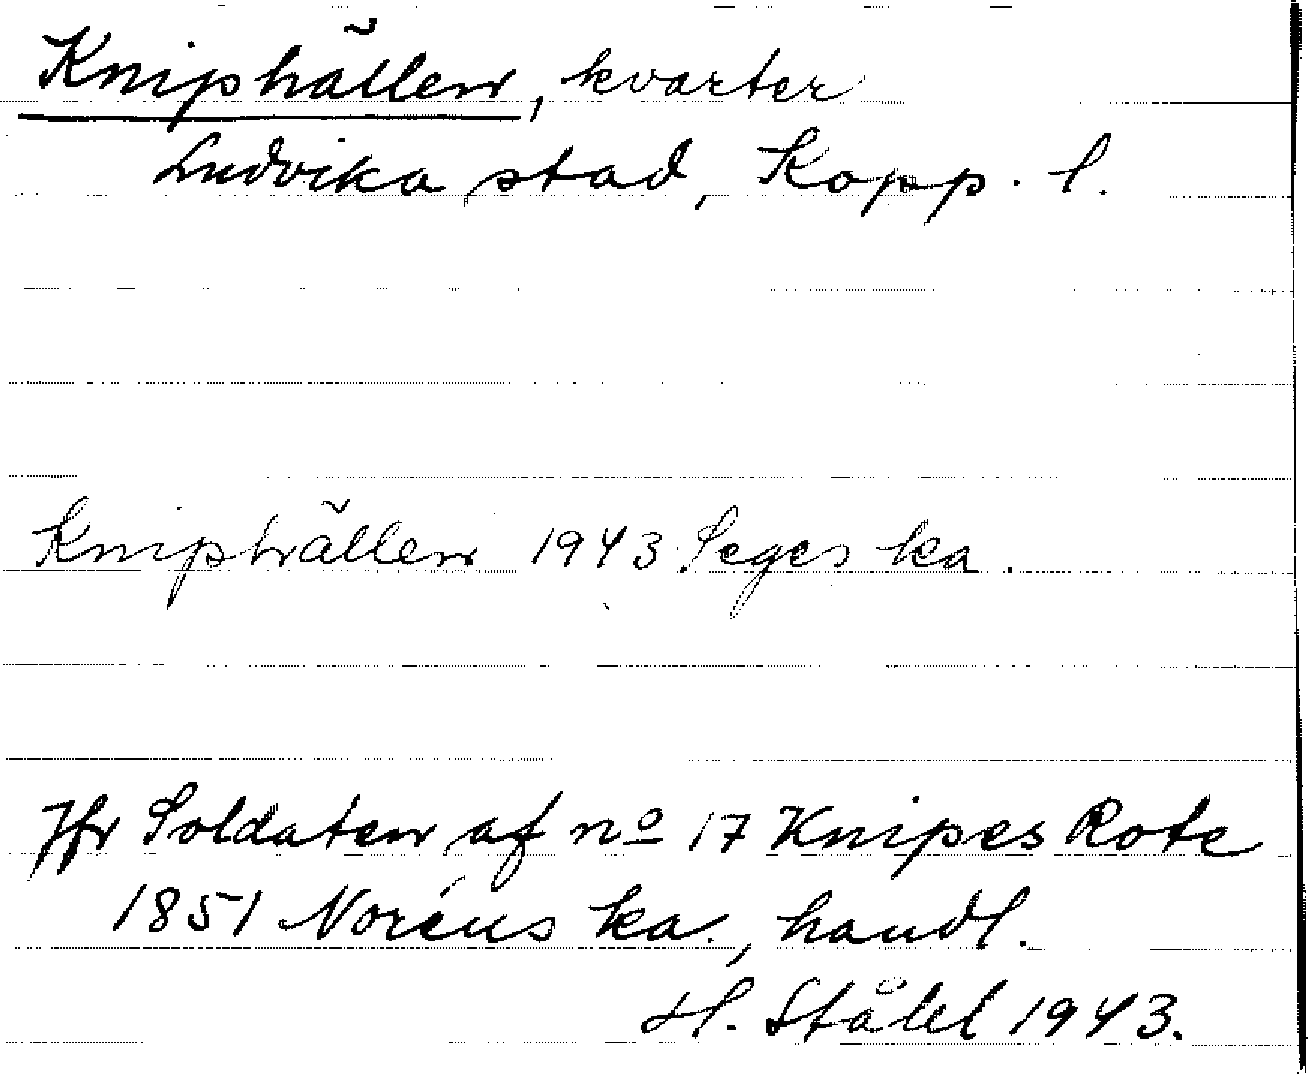 Kniphällen, kvarter
Ludvika stad, Kopp. l.
Kniphällen 1943 Seges ka.
Jfr Soldaten af no 17 Knipes Rote
1851 Noréus ka., handl.
H. Ståhl 1943.